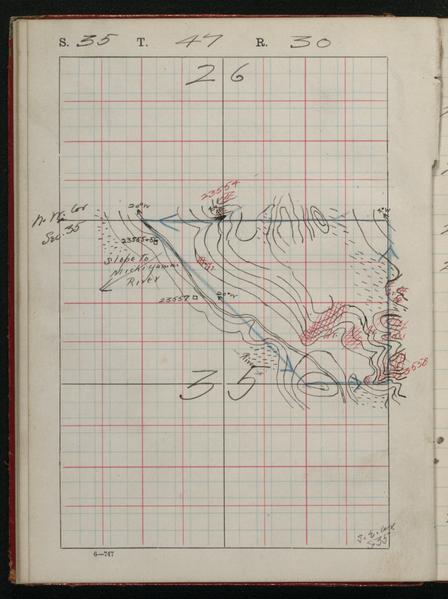 S. 35 T. 47 R. 30
26
23554
N. W. Cor
Sec. 35
20°W
Slope to
River
23557
20°W
River
35
23558
S. E. Cor
S 35
6—747